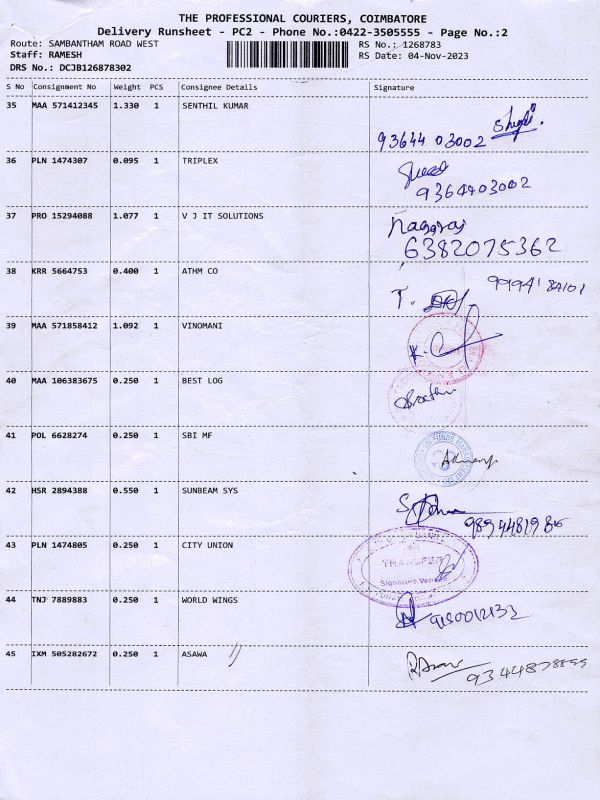 THE PROFESSIONAL COURIERS, COIMBATORE
Delivery Runsheet - PC2 - Phone No.:0422-3505555 - Page No.:2
Route: SAMBANTHAM ROAD WEST RS No.: 1268783
Staff: RAMESH RS Date: 04-Nov-2023
DRS No.: DCJB126878302
S No Consignment No Weight PCS Consignee Details Signature
35 MAA 571412345 1.330 1 SENTHIL KUMAR
93644 03002
36 PLN 1474307 0.095 1 TRIPLEX
9364403002
37 PRO 15294088 1.077 1 V J IT SOLUTIONS Nagaraj
6382075362
38 KRR 5664753 0.400 1 ATHM CO
T.
39 MAA 571858412 1.092 1 VINOMANI
K.
40 MAA 106383675 0.250 1 BEST LOG
41 POL 6628274 0.250 1 SBI MF
SBI FUNDS
42 HSR 2894388 0.550 1 SUNBEAM SYS
43 PLN 1474805 0.250 1 CITY UNION
TRANSFER
Signature
44 TNJ 7889883 0.250 1 WORLD WINGS
9150012132
45 IXM 505282672 0.250 1 ASAWA